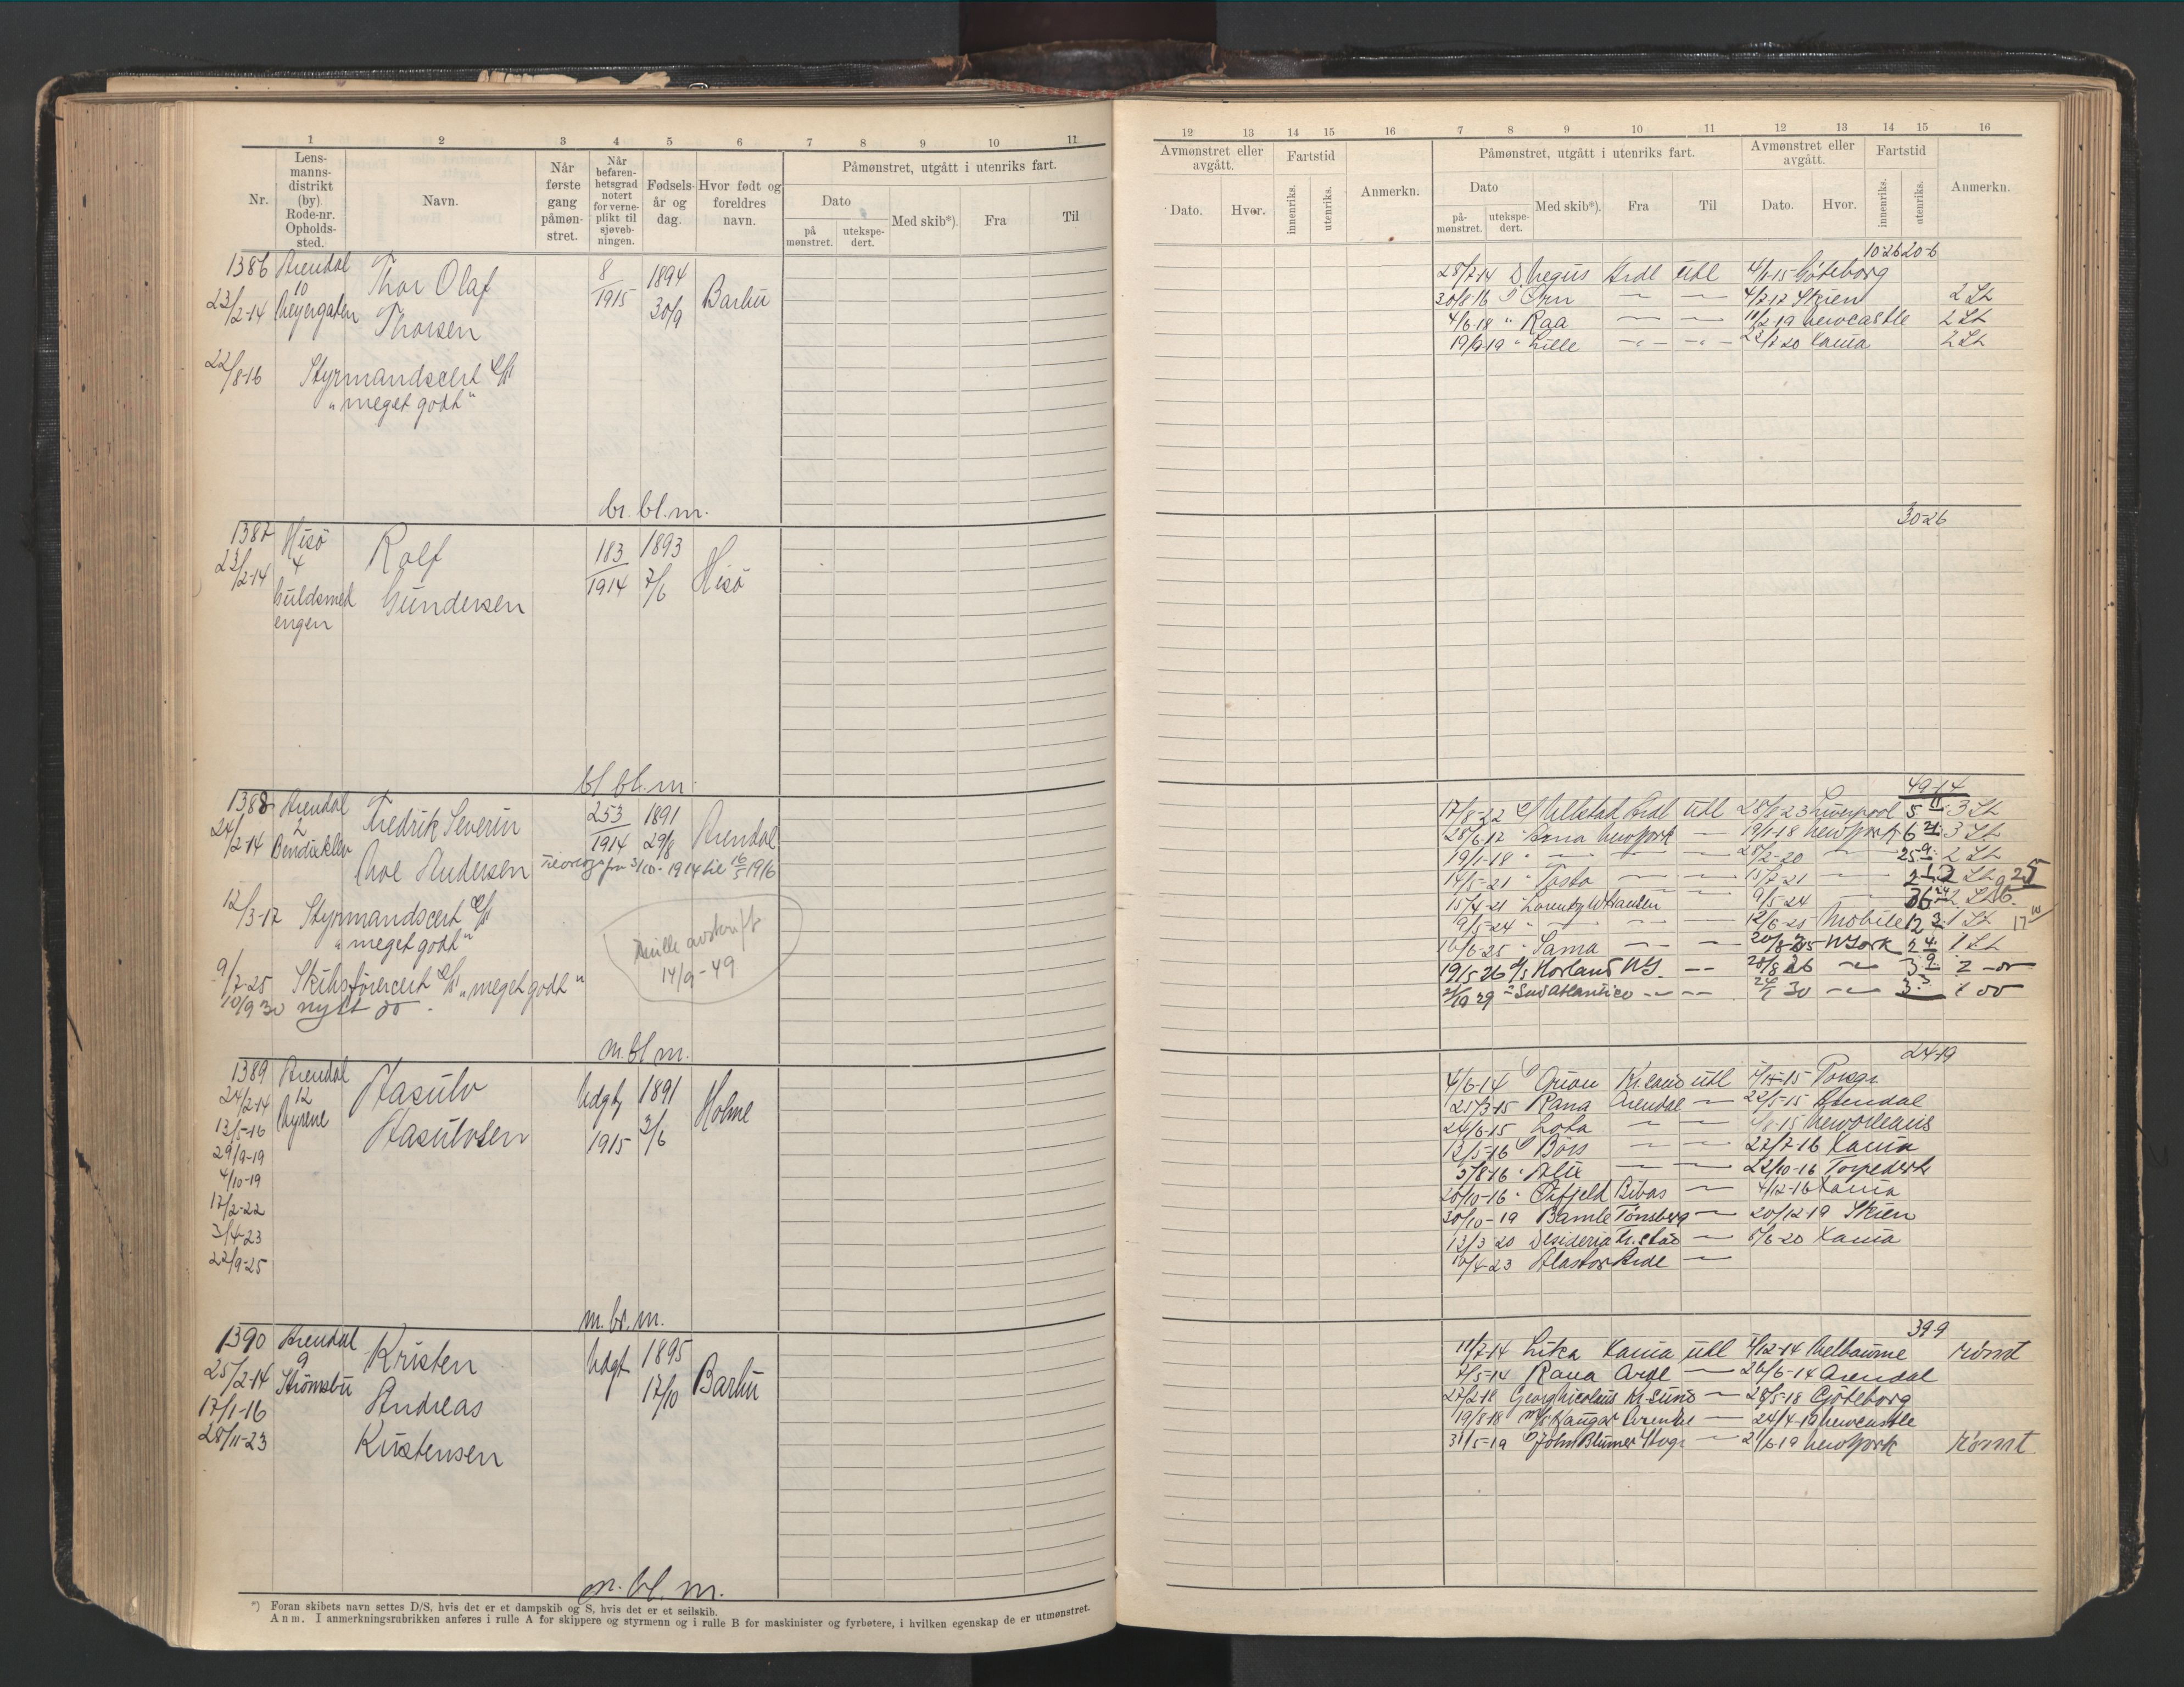 1 2 3 4 5 6 7 8 9 10 11
Nr.
Lens-
manns-
distrikt
(by).
Rode-nr.
Opholds-
sted.
Navn.
Når
første
gang
påmøn-
stret.
Når
befaren-
hetsgrad
notert
for verne-
plikt til
sjøveb-
ningen.
Fødsels-
år og
dag.
Hvor født og
foreldres
navn.
Påmønstret, utgått i utenriks fart.
Dato
på
mønstret.
utekspe-
dert.
Med skib*).
Fra
Til
1386 Arendal
10
23/2-14
Thor Olaf
Thorsen
8
1915
1894
30/9
Barbu
22/8-16 Styrmandscert
"meget godt"
br. bl. m.
1387 Hisø
4
23/2-14
Guldsmed
engen
Rolf
Gundersen
183
1914
1893
7/6
Hisø
bl bl. m.
1388 Arendal
2
24/2-14 Bendiksklev
Fredrik Severin
Andersen
253
1914
1891
29/8
Arendal
fra 3/10-1914 til 16/5 1916
12/3-17 Styrmandscert
"meget godt"
avskrift
14/9-49
9/7-25 Skibsførercert "meget godt"
10/9 30 nytt do.
m. bl m.
1389 Arendal
12
24/2-14
13/5-16
29/9-19
4/10-19
17/2-22
3/4-23
22/9-25
Stasulv
Stasulvsen
Udgt
1915
1891
3/6
Holme
m. br. m.
1390 Arendal
9
25/2-14 Strømsbu
17/1-16
28/11-23
Kristen
Andreas
Kristensen
Udgt
1895
17/10
Barbu
m. bl. m.
*) Foran skibets navn settes D/S, hvis det er et dampskib og S, hvis det er et seilskib.
Anm. I anmerkningsrubrikken anføres i rulle A for skippere og styrmenn og i rulle B for maskinister og fyrbøtere, i hvilken egenskap de er utmønstret.
12 13 14 15 16 7 8 9 10 11 12 13 14 15 16
Avmønstret eller
avgått.
Dato.
Hvor.
Fartstid
innenriks.
utenriks.
Anmerkn.
Påmønstret, utgått i utenriks fart.
Dato
på-
mønstret.
utekspe-
dert.
Med skib*).
Fra
Til
Avmønstret eller
avgått.
Dato.
Hvor.
Fartstid
innenriks.
utenriks.
Anmerkn.
10-26 20-6
28/7-14 D. Negus Ardl utl 4/1-15 Göteborg
30/8-16 Ørn — — 4/7-17 Skien 2 St
4/6-18 " Raa — — 11/2-19 Newcastle 2 St
19/9-19 " Lille — — 23/7 20 Xania 2 St
30-26
49-14
17/8-22 Ardl utl 28/8-23 Liverpool 5 3 St
28/6-17 New York — 19/1-18 New York 6 3 St
19/1-18 " — — — 28/2-20 — 25 2 St
14/5-21 " Tosto — — 15/7-21 — 2 St
15/7-21 " Lorentz W Hansen — 9/5-24 — 36 2 St
9/5-24 " — — — 12/6-25 Mobile 12 3 1 St
16/6-25 " Sama — — 20/8-35 N York 2 4 1 St
19/5 26 Horland NY — 20/8 26 — 3 2 do
29 " Sud Atlantico — — 30 — 3 1 do
24-19
4/6-14 Orion Kr.sand utl Porsgr
25/3-15 Rana Arendal — 22/5-15 Arendal
24/6-15 Lota — — 8-15 New Orleans
13/5-16 Børs — — 27/7-16 Xania
3/8-16 " Alix — — 22/10-16 Torpedert
20/10-16 " Ørfjeld Bibao — 4/12-16 Xania
30/10-19 Bamle Tønsberg — 20/12-19 Skien
13/3 20 Desideria — 5/6-20 Xania
10/4-23 Alastor Ardl —
39-9
11/7-14 Xania utl 4/12-14 Melbourne rømt
7/5-14 Rana Ardl — 26/6-14 Arendal
27/2-18 Georg Nicolaus Kr.sund — 28/5-18 Göteborg
19/8-18 m/s Kaugar Arendal — 24/4-19 Newcastle
31/5-19 John Blumer — 21/6-19 New York rømt